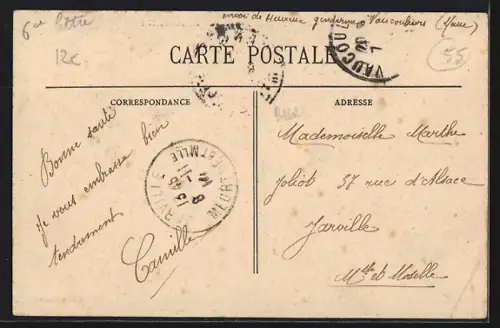 6e lettre
envoi de Heurive gendarme Vaucouleurs (Meuse)
12c
55
CARTE POSTALE
VAUCOUL
CORRESPONDANCE
ADRESSE
Bonne santé
Je vous embrasse bien
tendrement
Camille
JARVILLE MEURTHE-ET-MLLE
Mademoiselle Marthe
Joliot 37 rue d'Alsace
Jarville
Mthe et Moselle